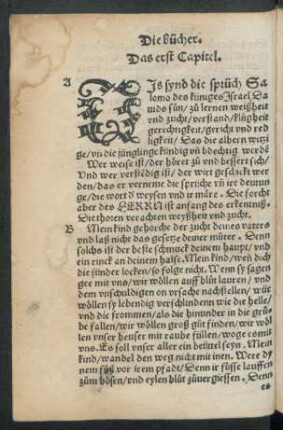 Die bücher.
Das erst Capitel.
A DIs synd die sprüch Sa
lomo des küniges Israel Da
uids sün/zů lernen weißheit
vnd zucht/verstand/klůgheit
gerechtigkeit/gericht vnd red
ligkeit/Das die albern witzi
ge/vñ die jünglinge kündig vñ bedechtig werdē
Wer weise ist/der höret zů vnd bessert sich/
Vnd wer verstēdig ist/der wirt geschickt wer
den/das er verneme die sprüche vñ ire deutun
ge/die wort d' weysen vnd ir märe. Die forcht
aber des HERRN ist anfang des erkentnuß.
Die thoren verachten weyßheit vnd zucht.
B Mein kind gehorche der zucht deines vaters
vnd laß nicht das gesetze deiner můter. Denn
solchs ist der beste schmuck deinem haupt/vnd
ein rinck an deinem halse. Mein kind/weñ dich
die sünder locken/so folge nicht. Wenn sy sagen
gee mit vns/wir wöllen auff blůt lauren/vnd
dem vnschuldigen on vrsache nachstellen/wir
wöllen sy lebendig verschlinden wie die helle/
vnd die frommen/als die hinunder in die grů
be fallen/wir wöllen groß gůt finden/wir wöl
len vnser heuser mit raube füllen/woge es mit
vns. Es soll vnser aller ein beüttel seyn. Mein
kind/wandel den weg nicht mit inen. Were dy
nem fůß vor irem pfadt/Denn ir füsse lauffen
zům bösen/vnd eylen blůt zůuergiessen. Denn
es